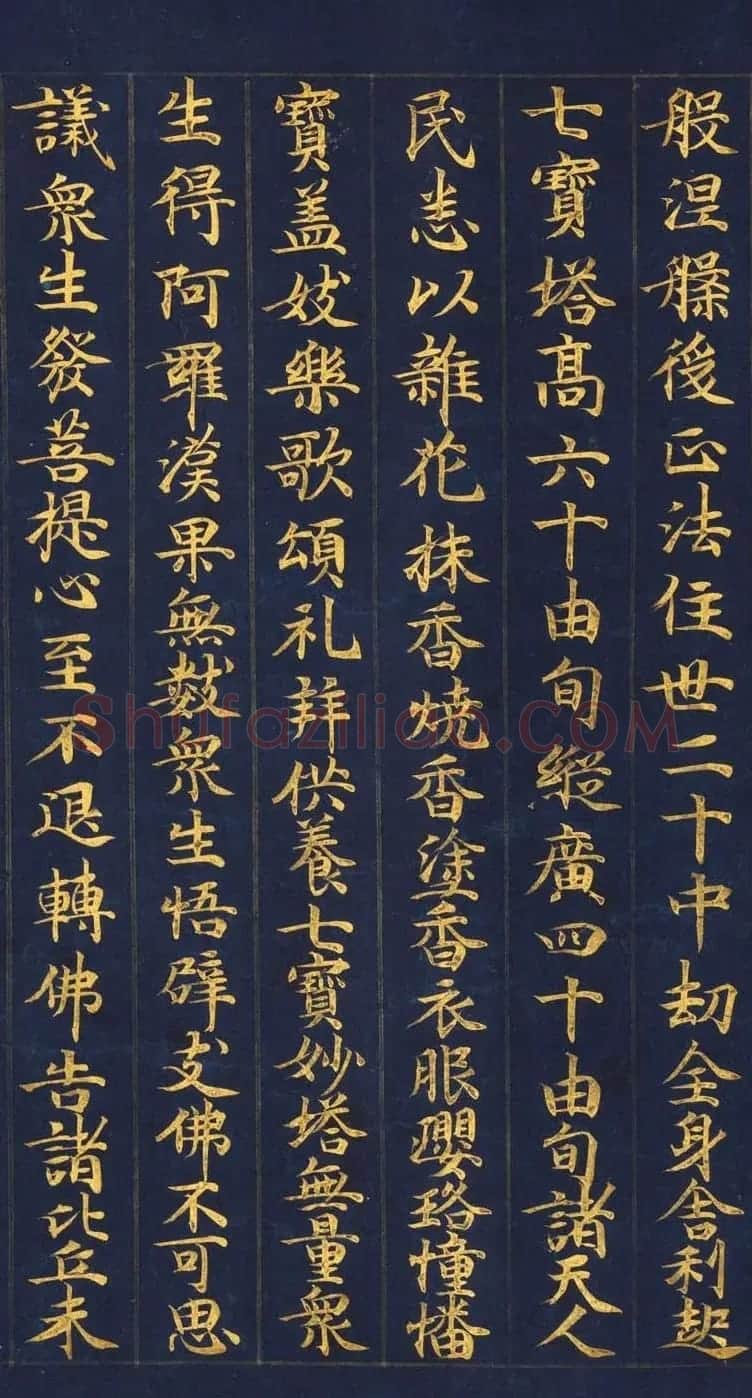 般涅槃後正法住世二十中劫全身舍利起
七寶塔高六十由旬縱廣四十由旬諸天人
民悉以雜花抹香燒香塗香衣服瓔珞幢幡
寶盖妓樂歌頌礼拜供養七寶妙塔無量衆
生得阿羅漢果無數衆生悟辟支佛不可思
議衆生發菩提心至不退轉佛告諸比丘未
Shufaziliao.COM